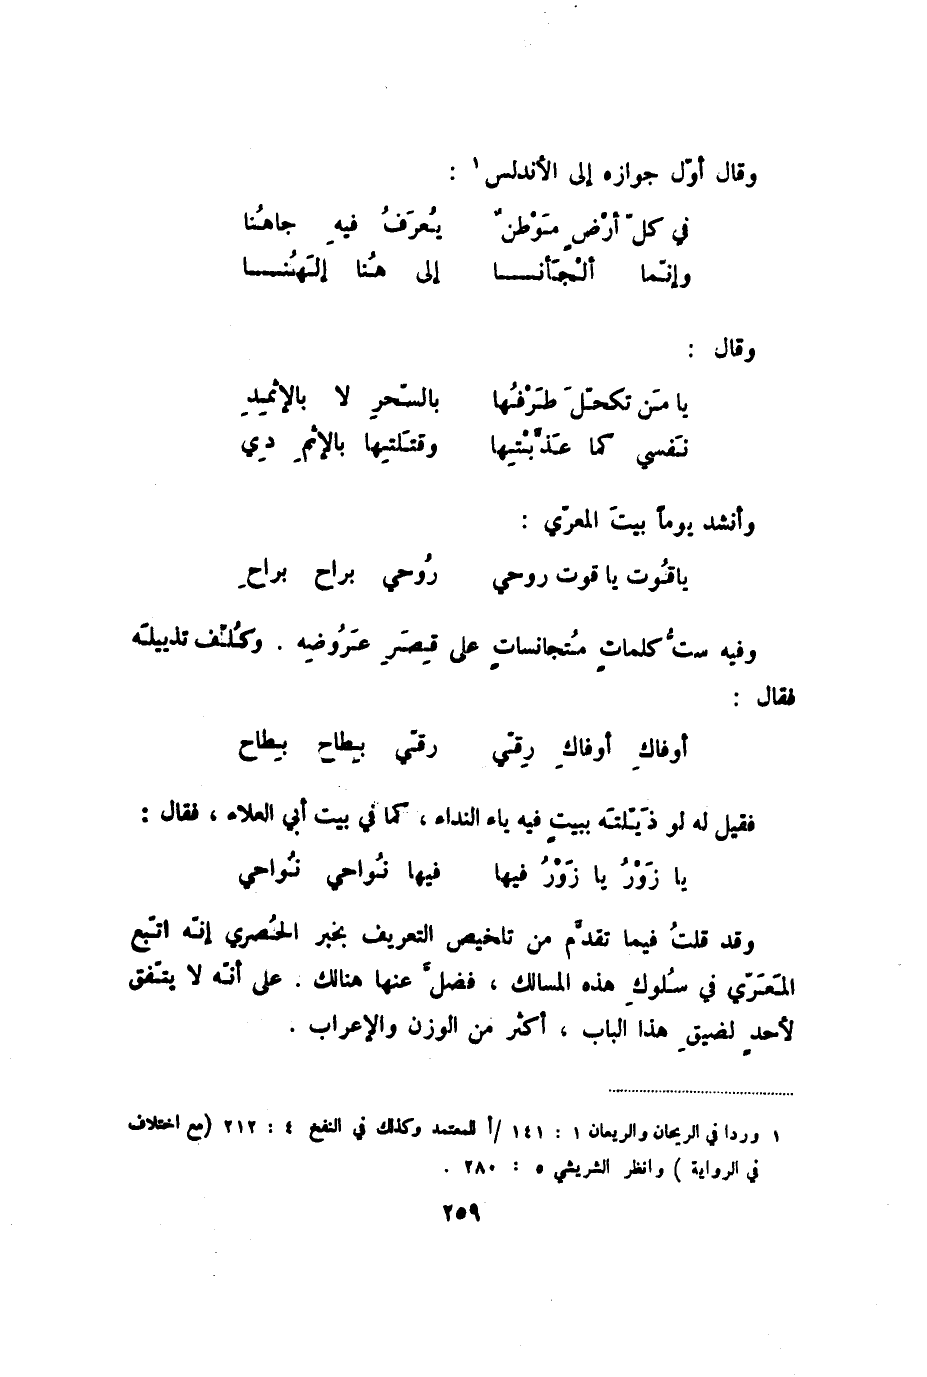 وقال أوّل جوازه إلى الأندلس ١ :
في كلّ أرْضٍ مَوْطنٌ يُعرَفُ فيهِ جاهُنا
وإنّما ألْجَأنــــا إلى هُنا إلَهُنــــا
وقال :
يا مَن تكحّلَ طَرْفُها بالسّحرِ لا بالإثْمِدِ
نَفسي كما عَذّبْتِها وقتَلتِها بالإثْمِ دِي
وأنشد يوماً بيتَ المعرّي :
ياقُوت يا قوت روحي رُوحي براح براحِ
وفيه ستُّ كلماتٍ مُتجانساتٍ على قِصَرِ عَرُوضِه . وكُلّف تذييلَه
فقال :
أوفاكِ أوفاكِ رِقّي رقّي بِطاح بِطاح
فقيل له لو ذَيّلتَه ببيتٍ فيه ياء النداء ، كما في بيت أبي العلاء ، فقال :
يا زَوْرُ يا زَوْرُ فيها فيها نُواحي نُواحي
وقد قلتُ فيما تقدَّم من تلخيص التعريف بخبر الحُصري إنّه اتّبع
المَعَرّي في سُلوكِ هذه المسالك ، فضلَّ عنها هنالك . على أنّه لا يتّفق
لأحدٍ لضيقِ هذا الباب ، أكثر من الوزن والإعراب .
١ وردا في الريحان والريعان ١ : ١٤١ /أ للمعتمد وكذلك في النفح ٤ : ٢١٢ (مع اختلاف
في الرواية ) وانظر الشريشي ٥ : ٢٨٠ .
٢٥٩